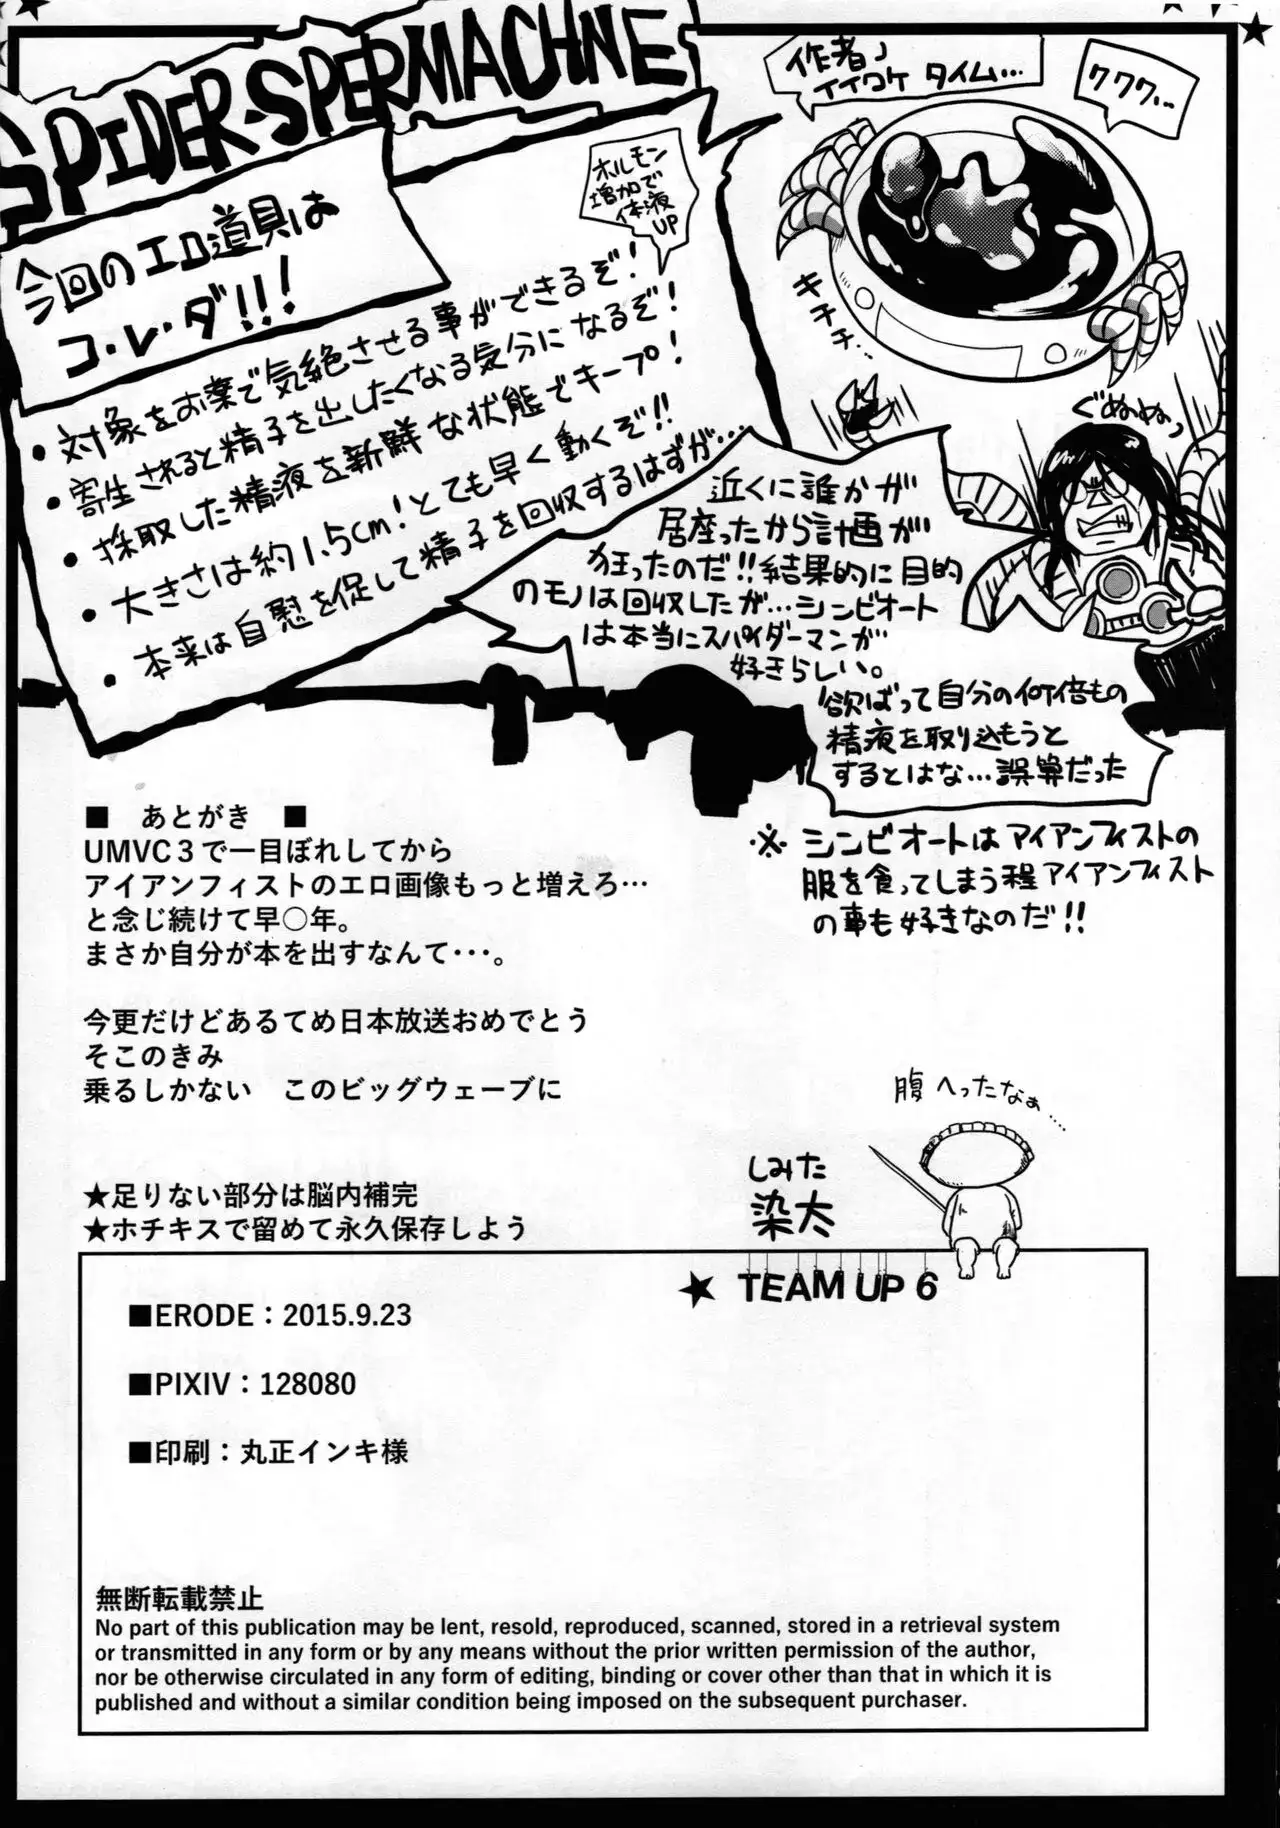 SPIDER-SPERMACHNE
作者」
イイワケ タイム…
クワワ…
今回のエロ道具は
コ・レ・ダ!!!
ホルモン
増加で
体液
UP
・対象をお薬で気絶させる事ができるぞ!
・寄生されると精子を出したくなる気分になるぞ!
・採取した精液を新鮮な状態でキープ!
・大きさは約1.5cm!とても早く動くぞ!!
・本来は自慰を促して精子を回収するはずが…
キチチ…
ぐぬぬぬっ
近くに誰かが
居座ったから計画が
狂ったのだ!!結果的に目的
のモノは回収したが…シンビオート
は本当にスパイダーマンが
好きらしい。
欲ばって自分の何倍もの
精液を取り込もうと
するとはな…誤算だった
※ シンビオートはアイアンフィストの
服を食ってしまう程アイアンフィスト
の事も好きなのだ!!
■ あとがき ■
UMVC3で一目ぼれしてから
アイアンフィストのエロ画像もっと増えろ…
と念じ続けて早○年。
まさか自分が本を出すなんて･･･。
今更だけどあるてめ日本放送おめでとう
そこのきみ
乗るしかない このビッグウェーブに
腹へったなぁ……
しみた
染太
★足りない部分は脳内補完
★ホチキスで留めて永久保存しよう
★ TEAM UP 6
■ERODE：2015.9.23
■PIXIV：128080
■印刷：丸正インキ様
無断転載禁止
No part of this publication may be lent, resold, reproduced, scanned, stored in a retrieval system
or transmitted in any form or by any means without the prior written permission of the author,
nor be otherwise circulated in any form of editing, binding or cover other than that in which it is
published and without a similar condition being imposed on the subsequent purchaser.